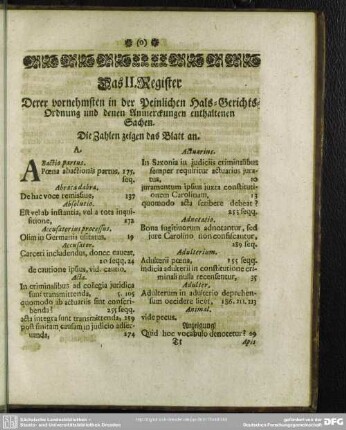 (o)
Das II. Register
Derer vornehmsten in der Peinlichen Hals-Gerichts-
Ordnung und denen Anmerckungen enthaltenen
Sachen.
Die Zahlen zeigen das Blatt an.
A.
Abactio partus.
Poena abactionis partus, 175.
seq.
Abracadabra,
De hac voce remissive, 137
Absolutio.
Est vel ab instantia, vel a tota inqui-
sitione, 272
Accusatorius processus.
Olim in Germania usitatus, 19
Accusator.
Carceri includendus, donec caveat,
20 seqq. 24
de cautione ipsius, vid. cautio.
Acta.
In criminalibus ad collegia juridica
sunt transmittenda, 5. 105
quomodo ab actuariis sint conscri-
benda? 255 seqq.
acta integra sunt transmittenda, 259
post finitam causam in judicio asser-
vanda, 274
Actuarius.
In Saxonia in judiciis criminalibus
semper requiritur actuarius jura-
tus, 10
juramentum ipsius juxta constituti-
onem Carolinam, 13
quomodo acta scribere debeat?
255 seqq.
Adnotatio.
Bona fugitivorum adnotantur, sed
jure Carolino non confiscantur,
289 seq.
Adulterium.
Adulterii poena, 155 seqq.
Indicia adulterii in constitutione cri-
minali nulla recensentur, 35
Adulter.
Adulterum in adulterio deprehen-
sum occidere licet, 186.
Animal.
vide pecus.
Angießung
Quid hoc vocabulo denotetur? 69
Tt